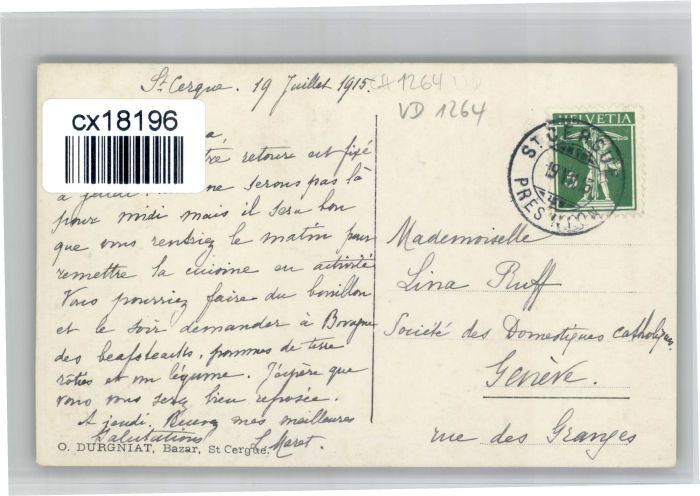 St Cergue. 19 Juillet 1915.
CH 1264 VD
VD 1264
cx18196
retour est fixé
à jeudi. ne serons pas là
pour midi mais il sera bon
que vous rentriez le matin pour
remettre la cuisine en activité
Vous pourriez faire du bouillon
et le soir demander à
des beafsteacks, pommes de terre
rôties et un légume. J'espère que
vous vous serez bien reposée.
A jeudi. Recevez mes meilleures
Salutations
O. DURGNIAT, Bazar, St Cergue.
HELVETIA
ST CERGUE
PRES NYON
Mademoiselle
Lina Ruff
Société des Domestiques catholiques.
Genève.
rue des Granges